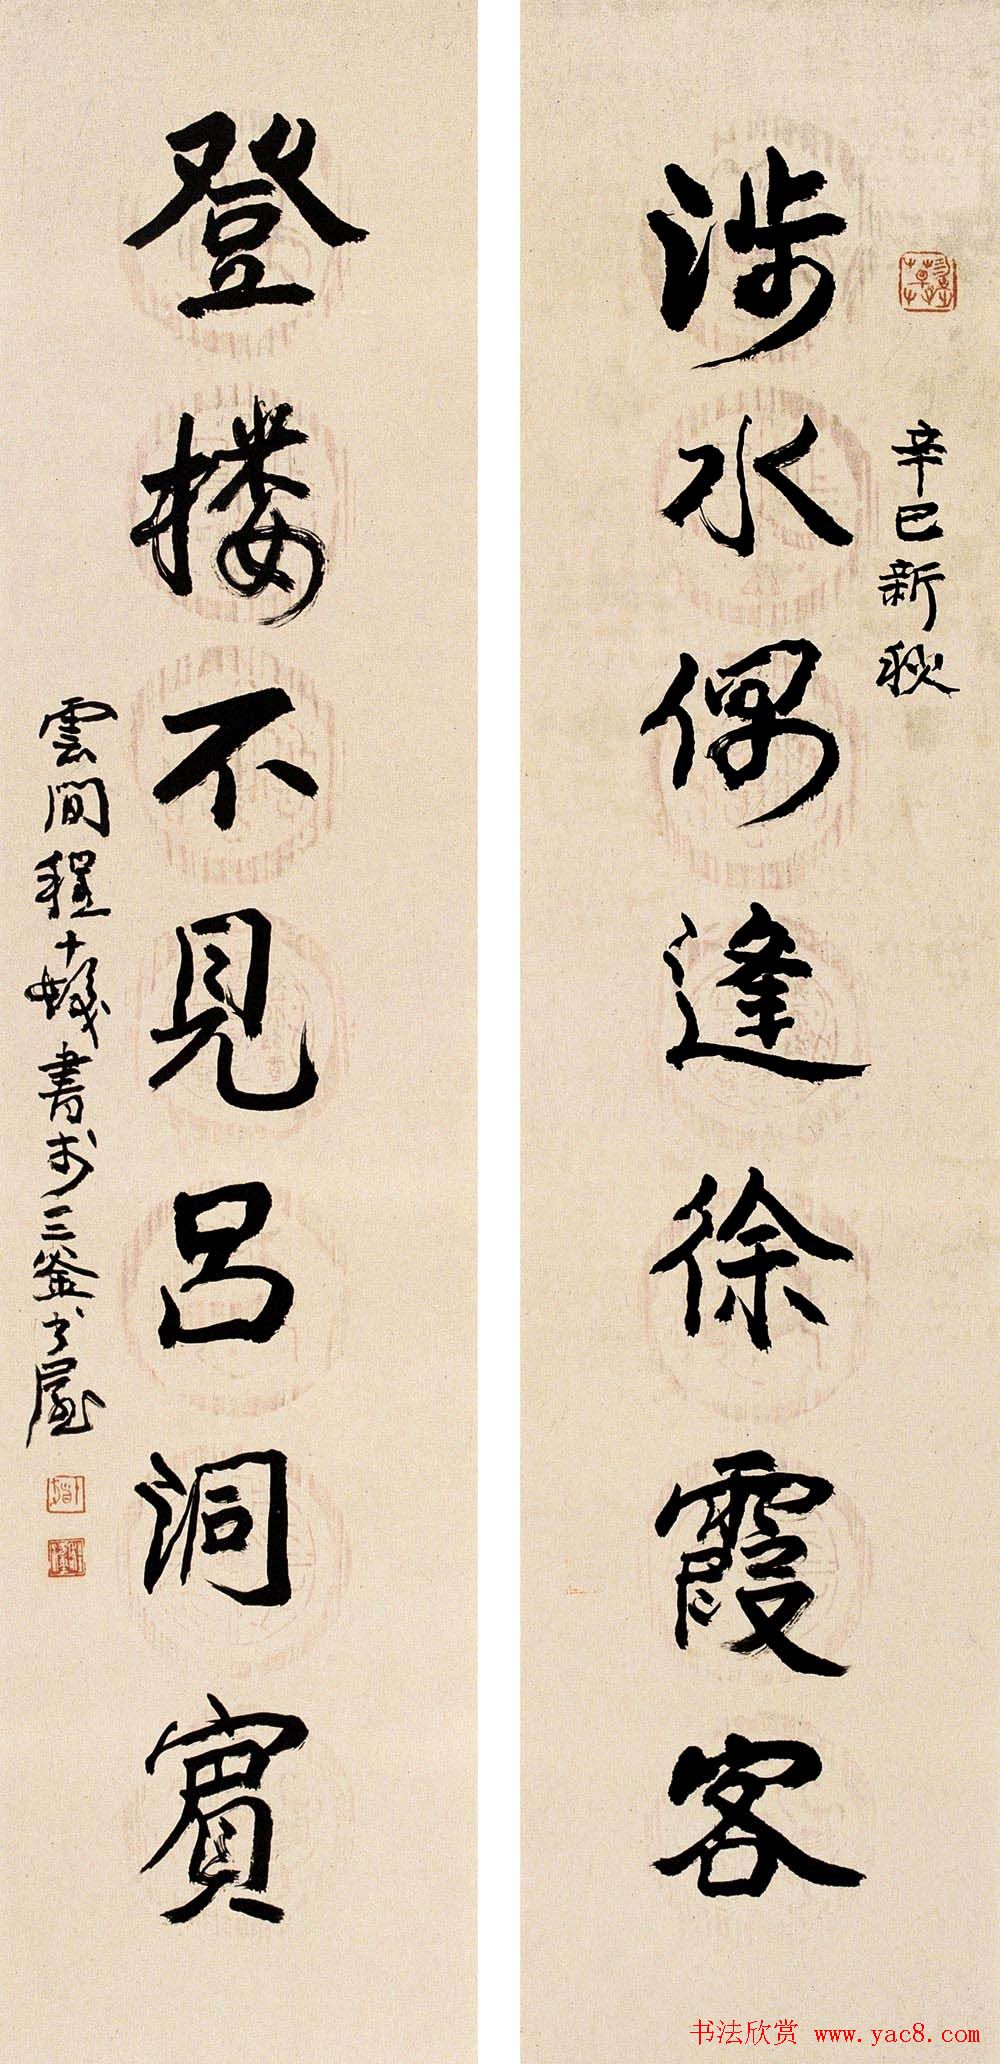 辛巳新秋
涉水偶逢徐霞客
登楼不見吕洞賓
雲間程十髮書於三釜書屋
书法欣赏 www.yac8.com